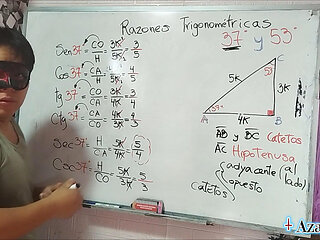 Razones Trigonométricas
37° y 53°
Sen37° = CO/H = 3K/5K = 3/5
Cos37° = CA/H = 4K/5K = 4/5
tg37° = CO/CA = 3K/4K = 3/4
Ctg37° = CA/CO = 4K/3K = 4/3
Sec37° = H/CA = 5K/4K = 5/4
Csc37° = H/CO = 5K/3K = 5/3
C
53°
5K
3K
37°
A
4K
B
AB y BC Catetos
AC Hipotenusa
Catetos
adyacente (al lado)
opuesto
+Aza